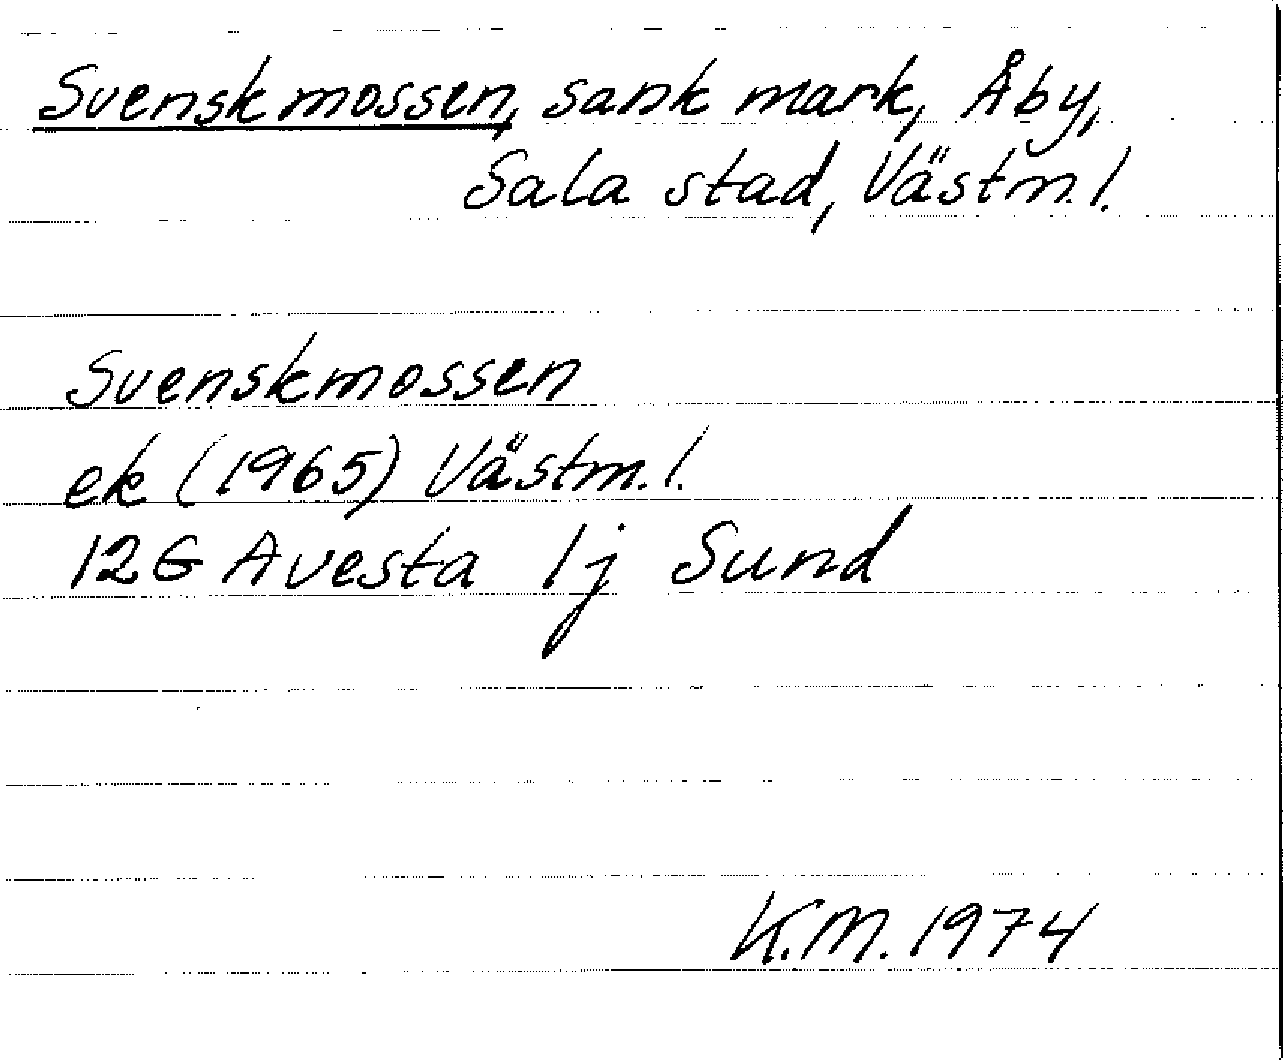 Svenskmossen, sank mark, Åby,
Sala stad, Västm.l.
Svenskmossen
ek (1965) Västm.l.
12G Avesta 1j Sund
K.M. 1974